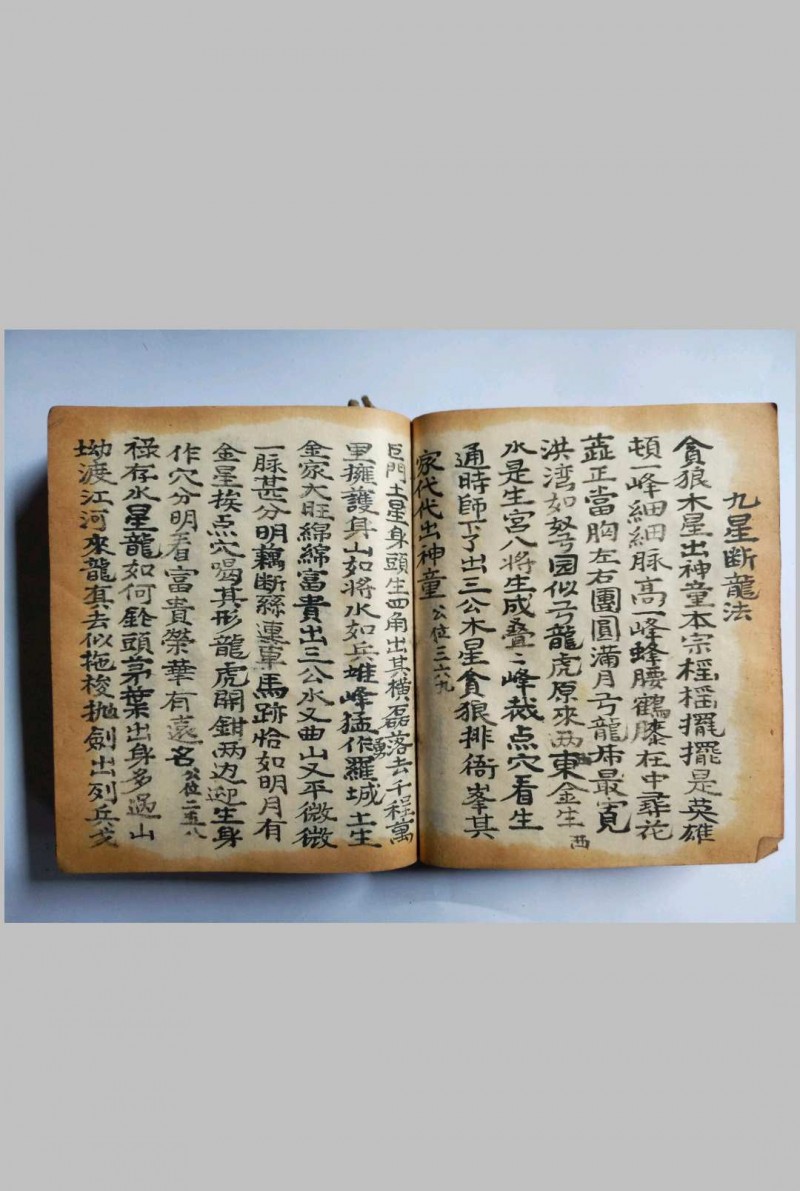 九星断龍法
貪狼木星出神童本宗榣榣擺擺是英雄
頓一峰細細脉高一峰蜂腰鶴膝在中尋花
蕋正當胸左右團圓滿月弓龍虎最寬
洪湾如弩弓园似弓龍虎原來西東金生
西
水是生宮八将生成叠〻峰裁点穴看生
通時師下了出三公木星貪狼排衙峯其
家代代出神童 公位三六九
巨門土星身頭生四角出其橫磊落去千程萬
里擁護身山如将水如兵堆峰猛作羅城土生
勇
金家大旺綿綿富貴出三公水又曲山又平微微
一脉甚分明藕斷絲連車馬跡恰如明月有
金星挨点穴喝其形龍虎開鉗两边迎生身
作穴分明看富貴榮華有遠名 公位二五八
禄存水星龍如何 頭茅葉出身多過山
坳渡江河來龍真去似拖梭抛劍出列兵戈